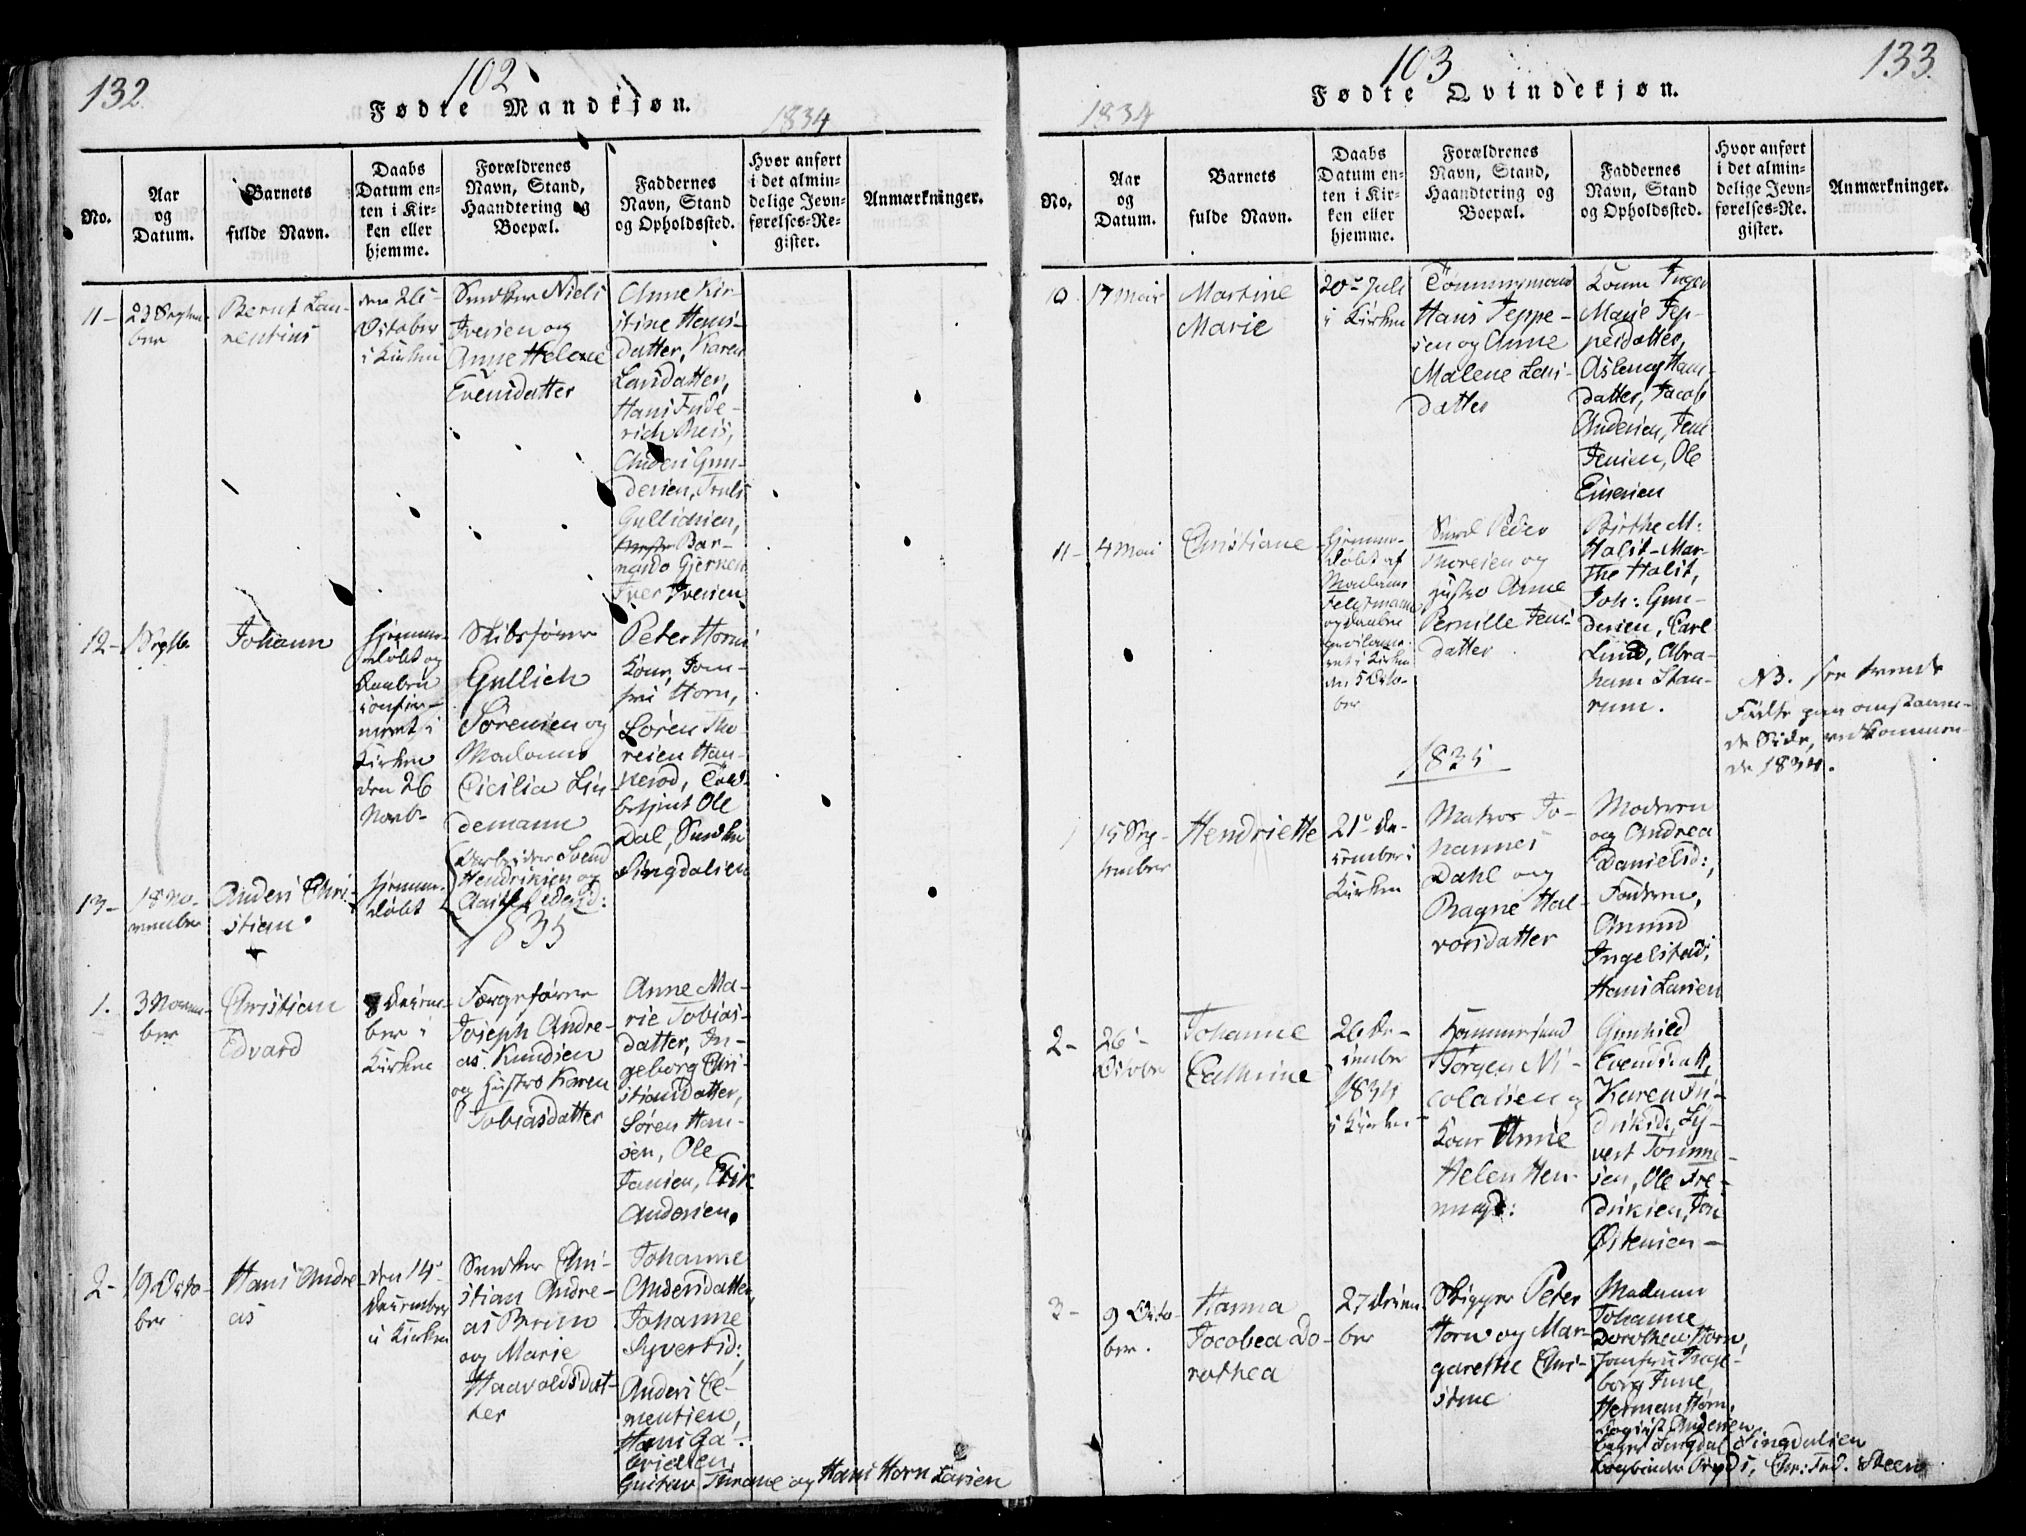 132
102
Fødte Mandkjøn.
1834
No.
Aar
og
Datum.
Barnets
fulde Navn.
Daabs
Datum en-
ten i Kir-
ken eller
hjemme.
Forældrenes
Navn, Stand,
Haandtering og
Boepæl.
Faddernes
Navn, Stand
og Opholdssted.
Hvor anført
i det almin-
delige Jevn-
førelses-Re-
gister.
Anmærkninger.
11-
23 Septem-
ber
Bernt Lau-
rentius
den 26
October
i Kirken
Snedker Niels
Iversen og
Anne Helene
Evensdatter
Anne Kir-
stine Hans-
datter, Karen
Larsdatter,
Hans Fride-
rich
Anders Gun-
dersen, Truls
Gullichsen,
Iver Iversen
12-
Septb.
Johann
hjemme-
døbt og
Daaben
confir-
meret i
Kirken
den 26
Novb-
Skibsfører
Gullich
Sørensen og
Madame
Cicilia Lin-
demann
Peter Horns
Kone, Jom-
fru Horn,
Søren Tho-
resen
Ole
Dal, Snedker
Singdalsen
13-
18 No-
vember
Anders Chri-
stian
hjemme-
døbt
Arbeider Svend
Hendriksen og
1835
1.
3 Novem-
ber
Christian
Edvard
8 Decem-
ber i
Kirken
Færgefører
Joseph Andre-
as Knudsen
og Hustro Karen
Tobiasdatter
Anne Ma-
rie Tobias-
datter, In-
geborg Chri-
stiansdatter,
Søren Han-
sen, Ole
Jansen, Erik
Andersen.
2-
19 Octo-
ber
Hans Andre-
as
den 14
December
i Kirken
Snedker Chri-
stian Andre-
as Bruun
og Marie
Haavoldsdat-
ter
Johanne
Andersdatter,
Johanne
Syvertsd:,
Anders Cle-
mentsen,
Hans Ga-
brielsen,
Gustav Throne og Hans Horn Larsen
103
133.
Fødte Qvindekjøn.
1834
No.
Aar
og
Datum.
Barnets
fulde Navn.
Daabs
Datum en-
ten i Kir-
ken eller
hjemme.
Forældrenes
Navn, Stand,
Haandtering og
Boepæl.
Faddernes
Navn, Stand
og Opholdssted.
Hvor anført
i det almin-
delige Jevn-
førelses-Re-
gister.
Anmærkninger.
10
17 Mai
Martine
Marie
20 Juli
i Kirken
Tømmermand
Hans Jeppe-
sen og Anne
Malene Lars-
datter
Konen Inger
Marie Jep-
pesdatter,
Aslaug Hans-
datter, Jacob
Andersen, Jens
Jensen, Ole
Einersen
11-
4 Mai
Christiane
hjemme-
døbt af
Madame
og Daaben
i Kirken
den 5 Octo-
ber
Smed Peder
Thoresen og
Hustro Anne
Pernille Jens-
datter
Birthe M:
Holst-Mar-
the Holst,
Joh: Gun-
dersen, Carl
Lund, Abra-
ham Stan-
rum.
NB. see trende
Fødte paa omstaaen-
de Side, vedkommen-
de 1834.
1835
1
15 Sep-
tember
Hendriette
21 De-
cember i
Kirken
Matros Jo-
hannes
Dahl og
Ragne Hal-
vorsdatter
Moderen
og Andrea
Danielsd:,
Faderen,
Amund
Ingelstad,
Hans Larsen
2-
26
October
Johanne
Cathrine
26 De-
cember
1834
i Kirken
Jørgen Ni-
colaisen og
Kone Anne
Helen Hen-
Gunhild
Evensdatt,
Karen Fri-
driksd:, Sy-
vert Tomme-
sen, Ole Fre-
driksen, Jon
Østensen-
3-
9 Octo-
ber.
Hanna
Jacobea Do-
rothea
27 Decem
ber
Skipper Peter
Horn og Mar-
garethe Chri-
stine
Madame
Johanne
Dorothea Horn,
Jomfru Inge-
borg
Herman Horn,
Andersen
Singdalsen
Chr: Fred. Steen